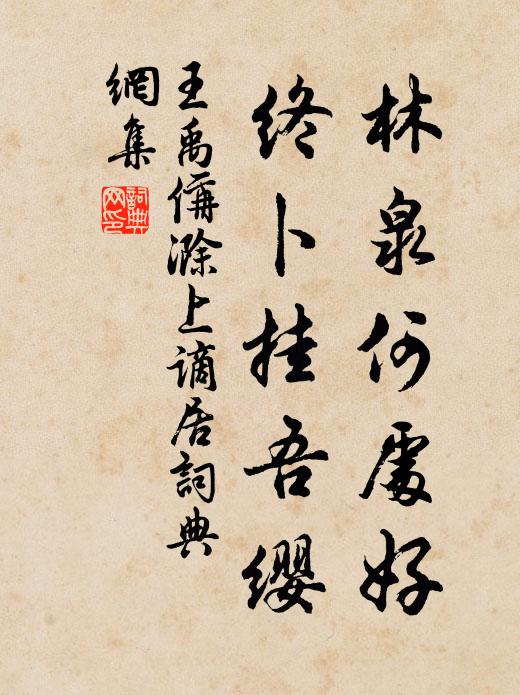 林泉何處好
終卜挂吾纓
王禹偁滁上謫居詞典
網集
詞典網印